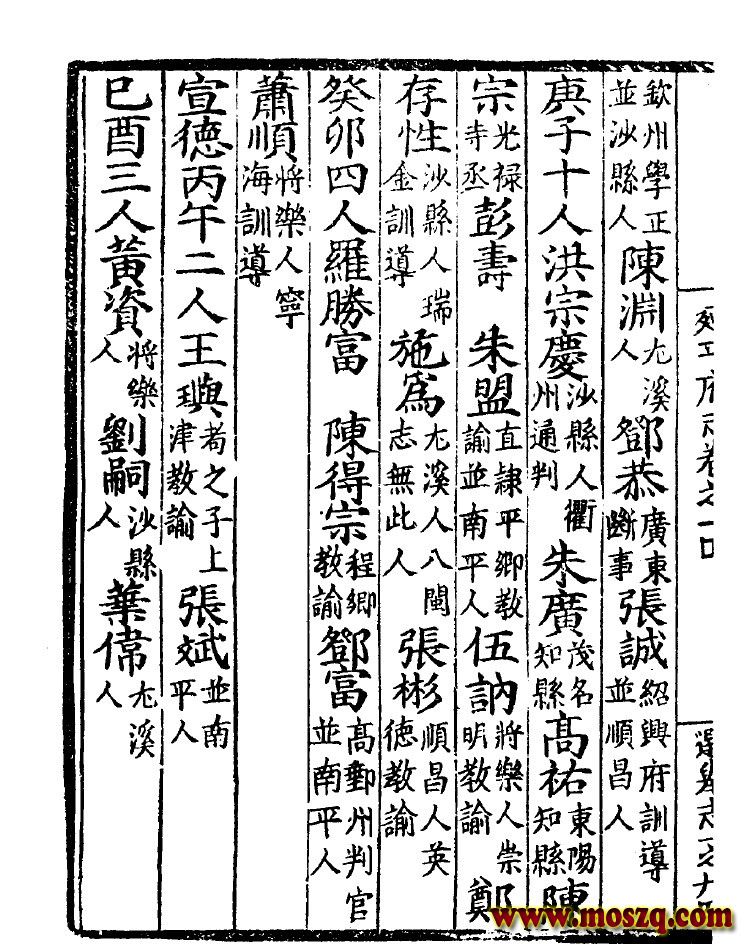 卷之
欽州學正並沙縣人陳淵尤溪人鄧恭廣東斷事張誠紹興府訓導並順昌人
庚子十人洪宗慶沙縣人衢州通判朱廣茂名知縣高祐東陽知縣陳
宗光祿寺丞彭壽 朱盟直隸平鄉教諭並南平人伍訥將樂人崇明教諭鄭
存性沙縣人瑞金訓導施爲尤溪人八閩志無此人張彬順昌人英德教諭
癸卯四人羅勝富 陳得宗程鄉教諭鄧富高郵州判官並南平人
蕭順將樂人寧海訓導
宣德丙午二人王璵者之子上津教諭張斌並南平人
己酉三人黃資將樂人劉嗣沙縣人葉偉尤溪人
www.moszq.com